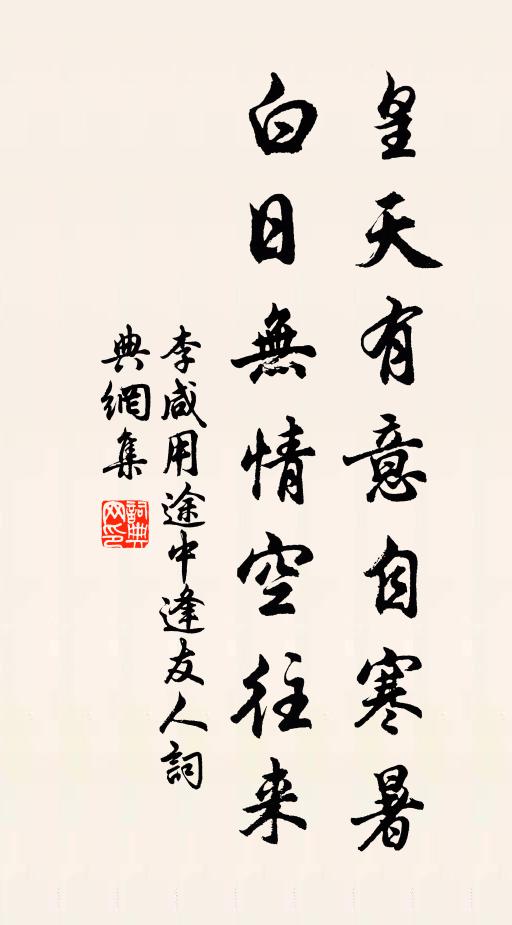 皇天有意自寒暑
白日無情空往来
李咸用途中逢友人詞
典網集
詞典
网印